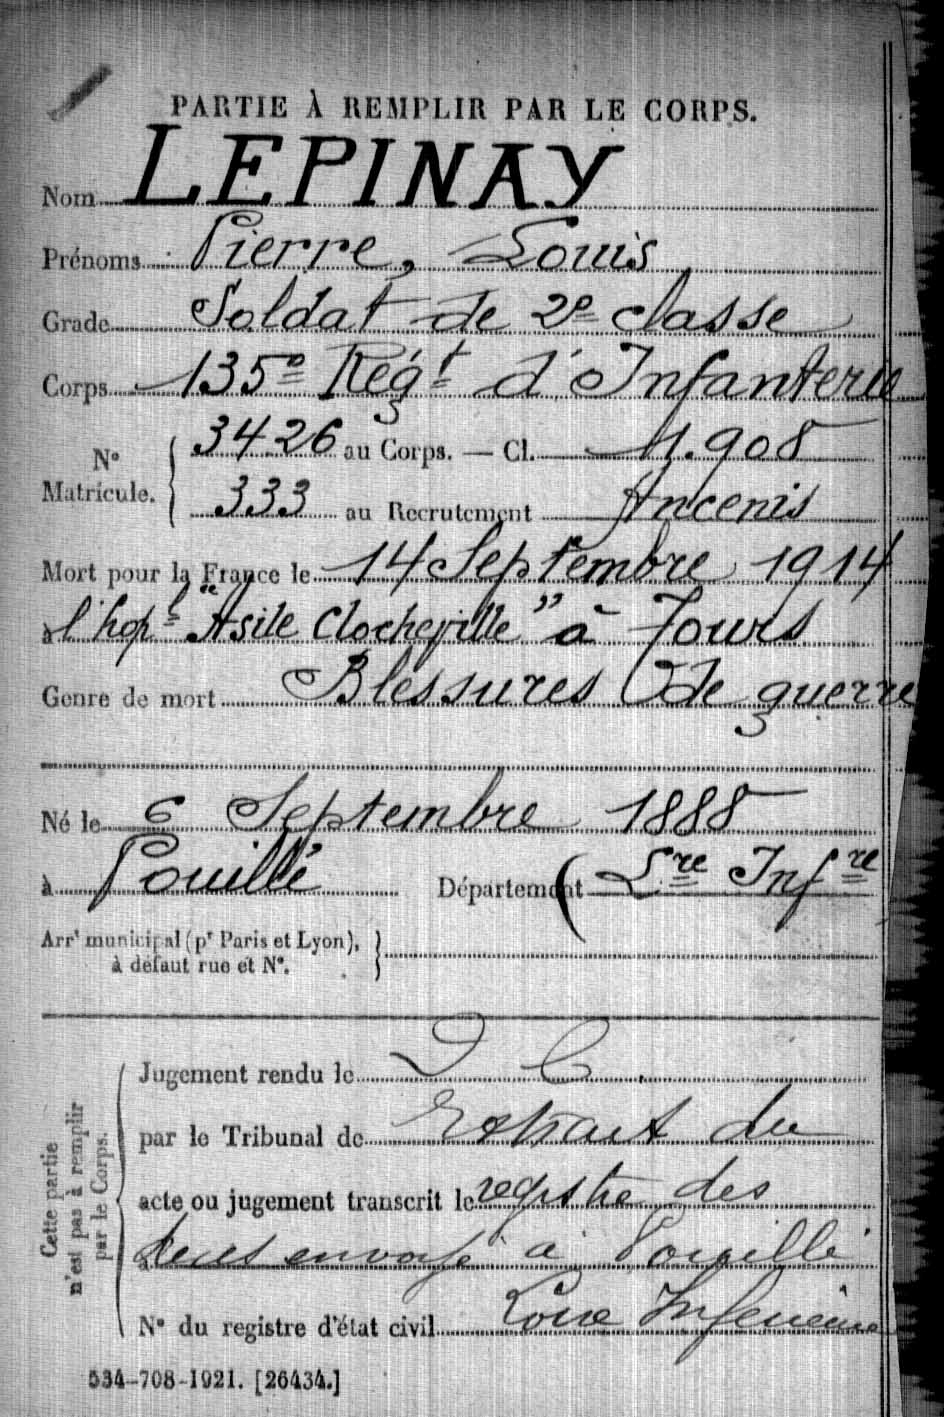 PARTIE À REMPLIR PAR LE CORPS.
Nom LEPINAY
Prénoms Pierre, Louis
Grade Soldat de 2e classe
Corps 135e Régt d'Infanterie
N° Matricule. { 3426 au Corps. — Cl. 1.908
333 au Recrutement Ancenis
Mort pour la France le 14 Septembre 1914
à l'hopl "Asile Clocheville" à Tours
Genre de mort Blessures de guerre
Né le 6 Septembre 1888
à Pouillé Département (Lre Infre
Arrt municipal (pr Paris et Lyon), à défaut rue et N°. }
Cette partie n'est pas à remplir par le Corps.
Jugement rendu le D C
par le Tribunal de Extrait du
acte ou jugement transcrit le registre des
à décès envoyé à Pouillé
N° du registre d'état civil Loire Inférieure
534-708-1921. [26434.]